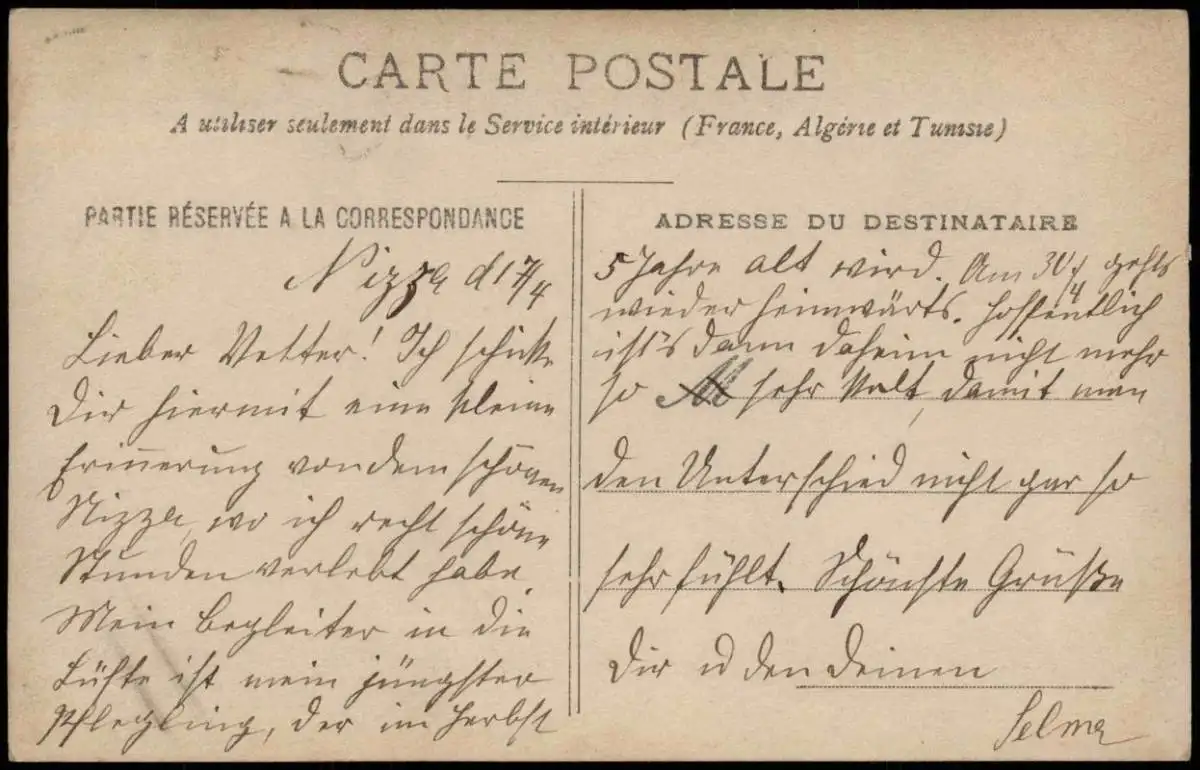 CARTE POSTALE
A utiliser seulement dans le Service intérieur (France, Algérie et Tunisie)
PARTIE RÉSERVÉE A LA CORRESPONDANCE
Nizza d 17/4
Lieber Vetter! Ich schicke
Dir hiermit eine kleine
Erinnerung von dem schönen
Nizza, wo ich recht schöne
Stunden verlebt habe.
Mein Begleiter in die
Lüfte ist mein jüngster
Pflegling, der im Herbst
ADRESSE DU DESTINATAIRE
5 Jahre alt wird. Am 30/4 gehts
wieder heimwärts. Hoffentlich
ist's dann daheim nicht mehr
so sehr kalt, damit man
den Unterschied nicht gar so
sehr fühlt. Schönste Grüße
Dir u den Deinen
Selma